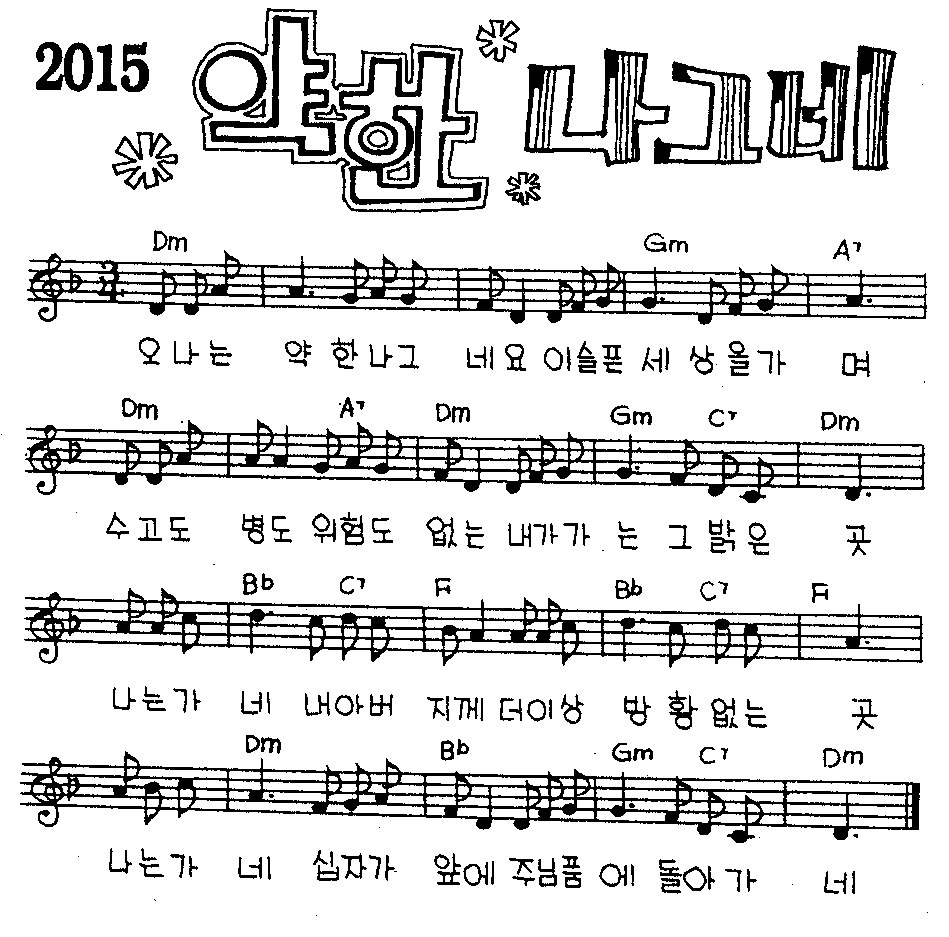 2015 약한 나그네
Dm Gm A7
오 나 는 약 한 나 그 네 요 이 슬 픈 세 상 올 가 며
Dm A7 Dm Gm C7 Dm
수 고 도 병 도 위 험 도 없 는 내 가 가 는 그 밝 은 곳
Bb C7 F Bb C7 F
나 는 가 네 내 아 버 지 께 더 이 상 방 황 없 는 곳
Dm Bb Gm C7 Dm
나 는 가 네 십 자 가 앞 에 주 님 품 에 돌 아 가 네